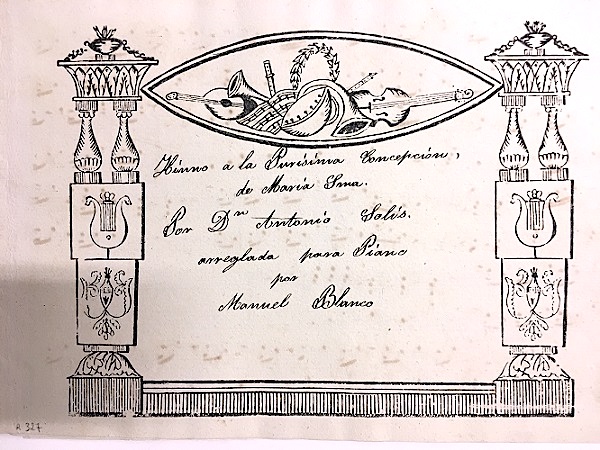 Himno a la Purísima Concepción,
de María Sma.
Por Dn Antonio Solís.
arreglada para Piano
por
Manuel Blanco
R. 327